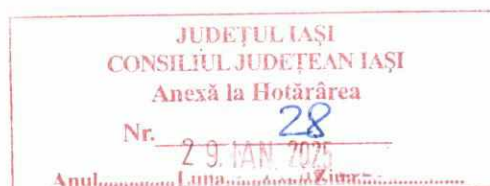 JUDEȚUL IAȘI
CONSILIUL JUDEȚEAN IAȘI
Anexă la Hotărârea
Nr. 28
29. IAN. 2025
Anul............Luna............Ziua............